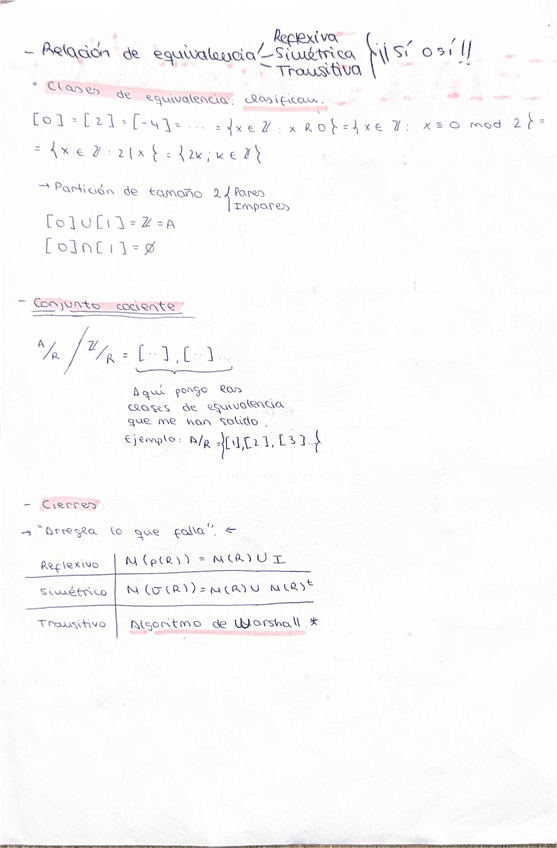 - Relación de equivalencia { Reflexiva
Simétrica
Transitiva } ¡¡Sí o sí!!
* Clases de equivalencia: clasifican.
[0] = [2] = [-4] = ... = {x ∈ ℤ : x R 0} = {x ∈ ℤ : x ≡ 0 mod 2} =
= {x ∈ ℤ : 2|x} = {2k; k ∈ ℤ}
→ Partición de tamaño 2 { Pares
Impares
[0] ∪ [1] = ℤ = A
[0] ∩ [1] = ∅
- Conjunto cociente
A/R / ℤ/R = [··], [··]...
Aquí pongo las
clases de equivalencia
que me han salido.
Ejemplo: A/R = {[1],[2],[3]..}
- Cierres
→ "Arregla lo que falla". ←
Reflexivo | M(ρ(R)) = M(R) ∪ I
Simétrico | M(σ(R)) = M(R) ∪ M(R)ᵗ
Transitivo | Algoritmo de Warshall *